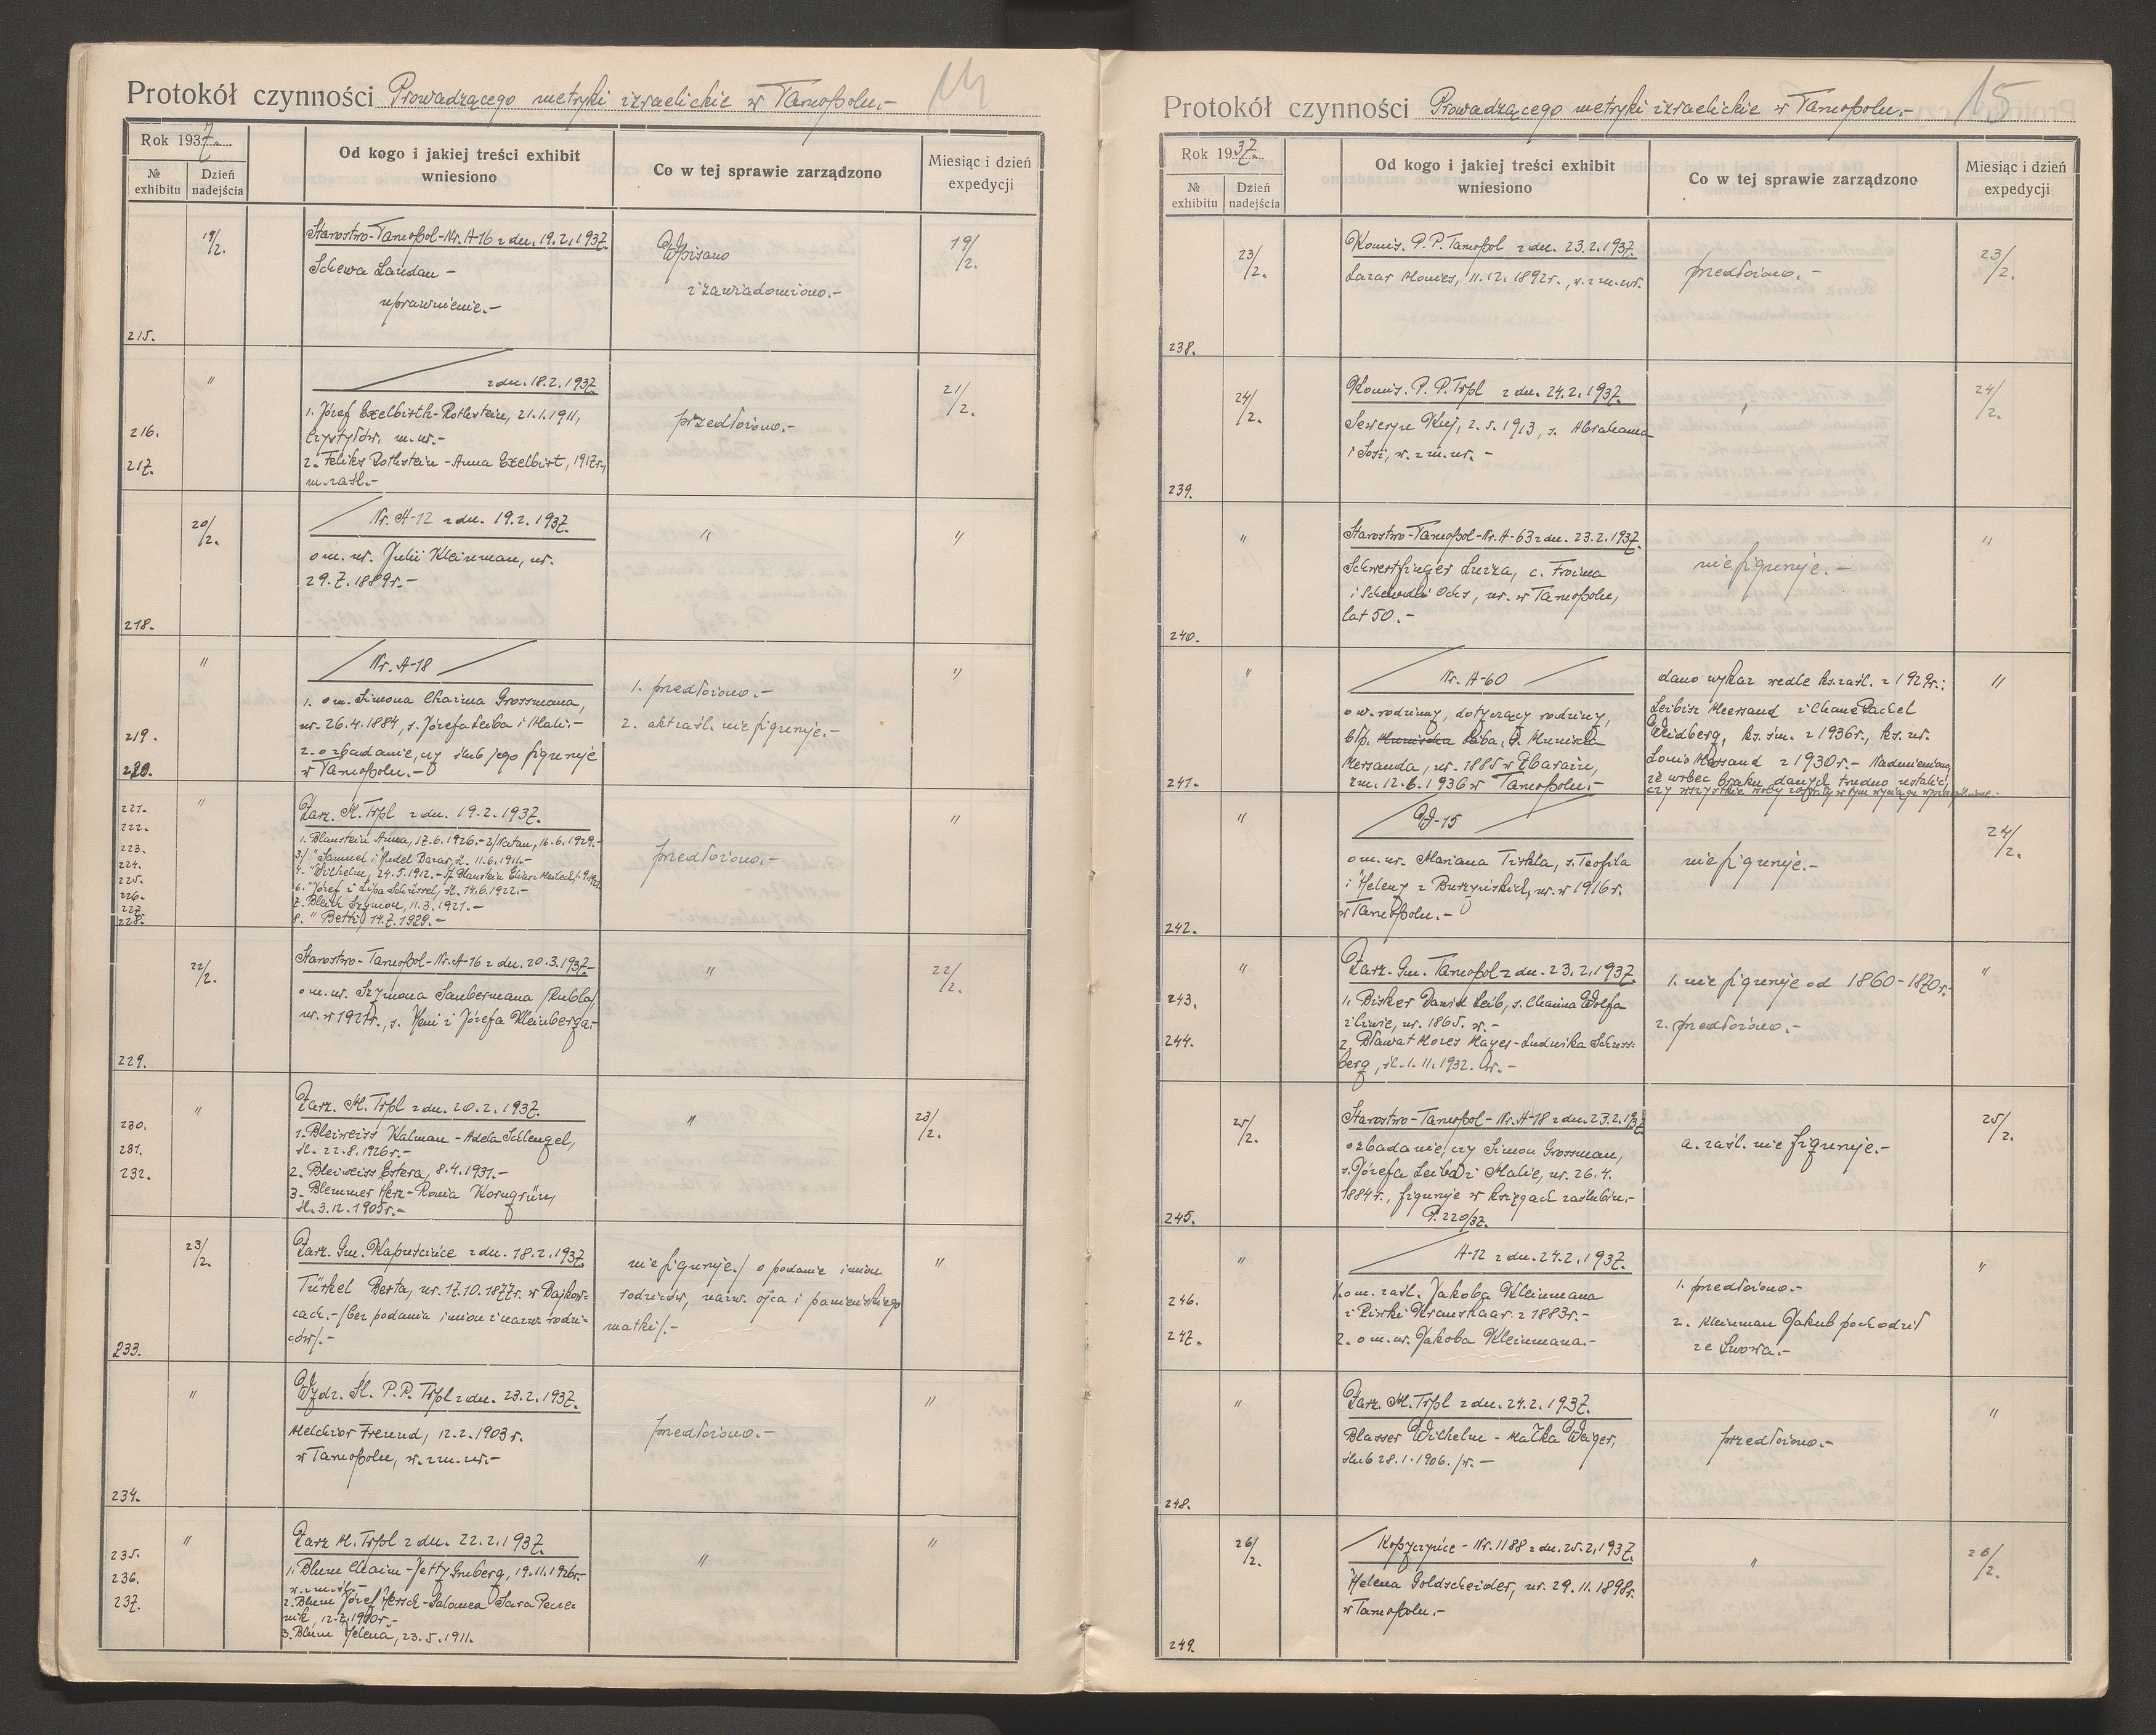 Protokół czynności Prowadzącego metryki izraelickie w Tarnopolu.- 14
Rok 1937.
№ exhibitu
Dzień nadejścia
Od kogo i jakiej treści exhibit wniesiono
Co w tej sprawie zarządzono
Miesiąc i dzień expedycji
215.
19/2.
Starostwo-Tarnopol-Nr. A-16 z dn. 19.2.1937.
Schewa Landau -
uprawnienie.-
Wpisano
i zawiadomiono.-
19/2.
216.
217.
"
z dn. 18.2.1937.
1. Józef Exelbirth-Rothstein, 21.1.1911,
Czystyłów, m. ur.-
2. Feliks Rothstein - Anna Exelbirt, 1917r.,
m. zaśl.-
przedłożono.-
21/2.
218.
20/2.
Nr. A-12 z dn. 19.2.1937.
o m. ur. Julii Kleinman, ur.
29.7.1889r.-
"
"
219.
220.
"
Nr. A-18
1. o m. Simona Chaima Grossmana,
ur. 26.4.1884, s. Józefa Leiba i Mali.-
2. o zbadanie, czy ślub jego figuruje
w Tarnopolu.-
1. przedłożono.-
2. akt zaśl. nie figuruje.-
"
221.
222.
223.
224.
225.
226.
227.
228.
"
Zarz. M. Trpl z dn. 19.2.1937.
1. Blaustein Anna, 17.6.1926.- 2/ Natan, 16.6.1929.-
3/ " Samuel i Judel Baras, śl. 11.6.1911.-
4. " Wilhelm, 24.5.1912.- 5/ Blaustein Eliasz Meilech, 1.9.
6. " Józef i Lipa Schüssel, śl. 14.6.1922.-
7. Bleich Szymon, 11.3.1921.-
8. " Betti, 14.7.1929.-
przedłożono.-
"
229.
22/2.
Starostwo-Tarnopol-Nr. A-16 z dn. 20.3.1937.-
o m. ur. Szymona Saubermana /Rubla/
ur. w 1921r., s. Heni i Józefa Kleinberga.-
"
22/2.
230.
231.
232.
"
Zarz. M. Trpl z dn. 20.2.1937.
1. Bleiweiss Kalman - Adela Schlengel,
śl. 22.8.1926r.-
2. Bleiweiss Estera, 8.4.1931.-
3. Blemmer Herz-Ronia Korngrün,
śl. 3.12.1905r.-
"
23/2.
233.
23/2.
Zarz. Gm. Kapuścińce z dn. 18.2.1937.
Türkel Berta, ur. 17.10.1877r. w Bajkow-
cach.- /bez podania imion i nazw. rodzi-
ców/.-
nie figuruje./ o podanie imion
rodziców, nazw. ojca i panieńskiego
matki/.-
"
234.
"
Wydz. Śl. P.P. Trpl z dn. 23.2.1937.
Melchior Freund, 12.2.1903r.
w Tarnopolu, w. z m. ur.-
przedłożono.-
"
235.
236.
237.
"
Zarz. M. Trpl z dn. 22.2.1937.
1. Blum Chaim - Jetty Gruberg, 19.11.1926r.-
w. z m. śl.-
2. Blum Józef Hersch-Salomea Sara Pecze-
nik, 12.2.1910r.-
3. Blum Helena, 23.5.1911.
"
"
Protokół czynności Prowadzącego metryki izraelickie w Tarnopolu.- 15
Rok 1937.
№ exhibitu
Dzień nadejścia
Od kogo i jakiej treści exhibit wniesiono
Co w tej sprawie zarządzono
Miesiąc i dzień expedycji
238.
23/2.
Komis. P.P. Tarnopol z dn. 23.2.1937.
Lazar Monies, 11.12.1892r., w. z m. ur.
przedłożono.-
23/2.
239.
24/2.
Komis. P.P. Trpl z dn. 24.2.1937.
Seweryn Kuj, 2.5.1913, s. Abrahama
i Sosi, w. z m. ur.-
"
24/2.
240.
"
Starostwo-Tarnopol-Nr. A-63 z dn. 23.2.1937.
Schwertfinger Luiza, c. Froima
i Scheindli Ochs, ur. w Tarnopolu,
lat 50.-
nie figuruje.-
"
241.
"
Nr. A-60
o w. rodzinny, dotyczący rodziny,
błp. Munischa Leiba, s. Munischa
Mersanda, ur. 1885 w Zbarażu,
zm. 12.6.1936 w Tarnopolu.-
dano wykaz wedle ks. zaśl. z 1929r.:
Leibisz Meersand i Chane Rachel
Weidberg, ks. śm. z 1936r., ks. ur.
Lonio Mersand z 1930r.- Nadmieniono,
że wobec braku danych trudno ustalić,
czy wszystkie osoby zostały w tym wyciągu wyszczególnione.-
"
242.
"
W-15
o m. ur. Mariana Tiskla, s. Teofila
i Heleny z Burzyńskich, ur. w 1916r.
w Tarnopolu.-
nie figuruje.-
24/2.
243.
244.
"
Zarz. Gm. Tarnopol z dn. 23.2.1937.
1. Bisker Dawid Leib, s. Chaima Wolfa
i Ciwie, ur. 1865. w.-
2. Bławat Mozes Mayer-Ludwika Schoss-
berg, śl. 1.11.1932. w.-
1. nie figuruje od 1860-1870r.-
2. przedłożono.-
"
245.
25/2.
Starostwo-Tarnopol-Nr. A-18 z dn. 23.2.1937
o zbadanie, czy Simon Grossman,
s. Józefa Leiba i Malie, ur. 26.4.
1884r., figuruje w księgach zaślubin.-
P. 220/37.
a. zaśl. nie figuruje.-
25/2.
246.
247.
"
A-12 z dn. 24.2.1937.
1. o m. zaśl. Jakoba Kleinmana
i Riwki Kraushaar z 1883r.-
2. o m. ur. Jakoba Kleinmana.-
1. przedłożono.-
2. Kleinman Jakub pochodził
ze Lwowa.-
"
248.
"
Zarz. M. Trpl z dn. 24.2.1937.
Blasser Wilhelm - Małka Wager,
ślub 28.1.1906. /w.-
przedłożono.-
"
249.
26/2.
Kopyczyńce - Nr. 1188 z dn. 25.2.1937.
Helena Goldscheider, ur. 29.11.1898r.
w Tarnopolu.-
"
26/2.